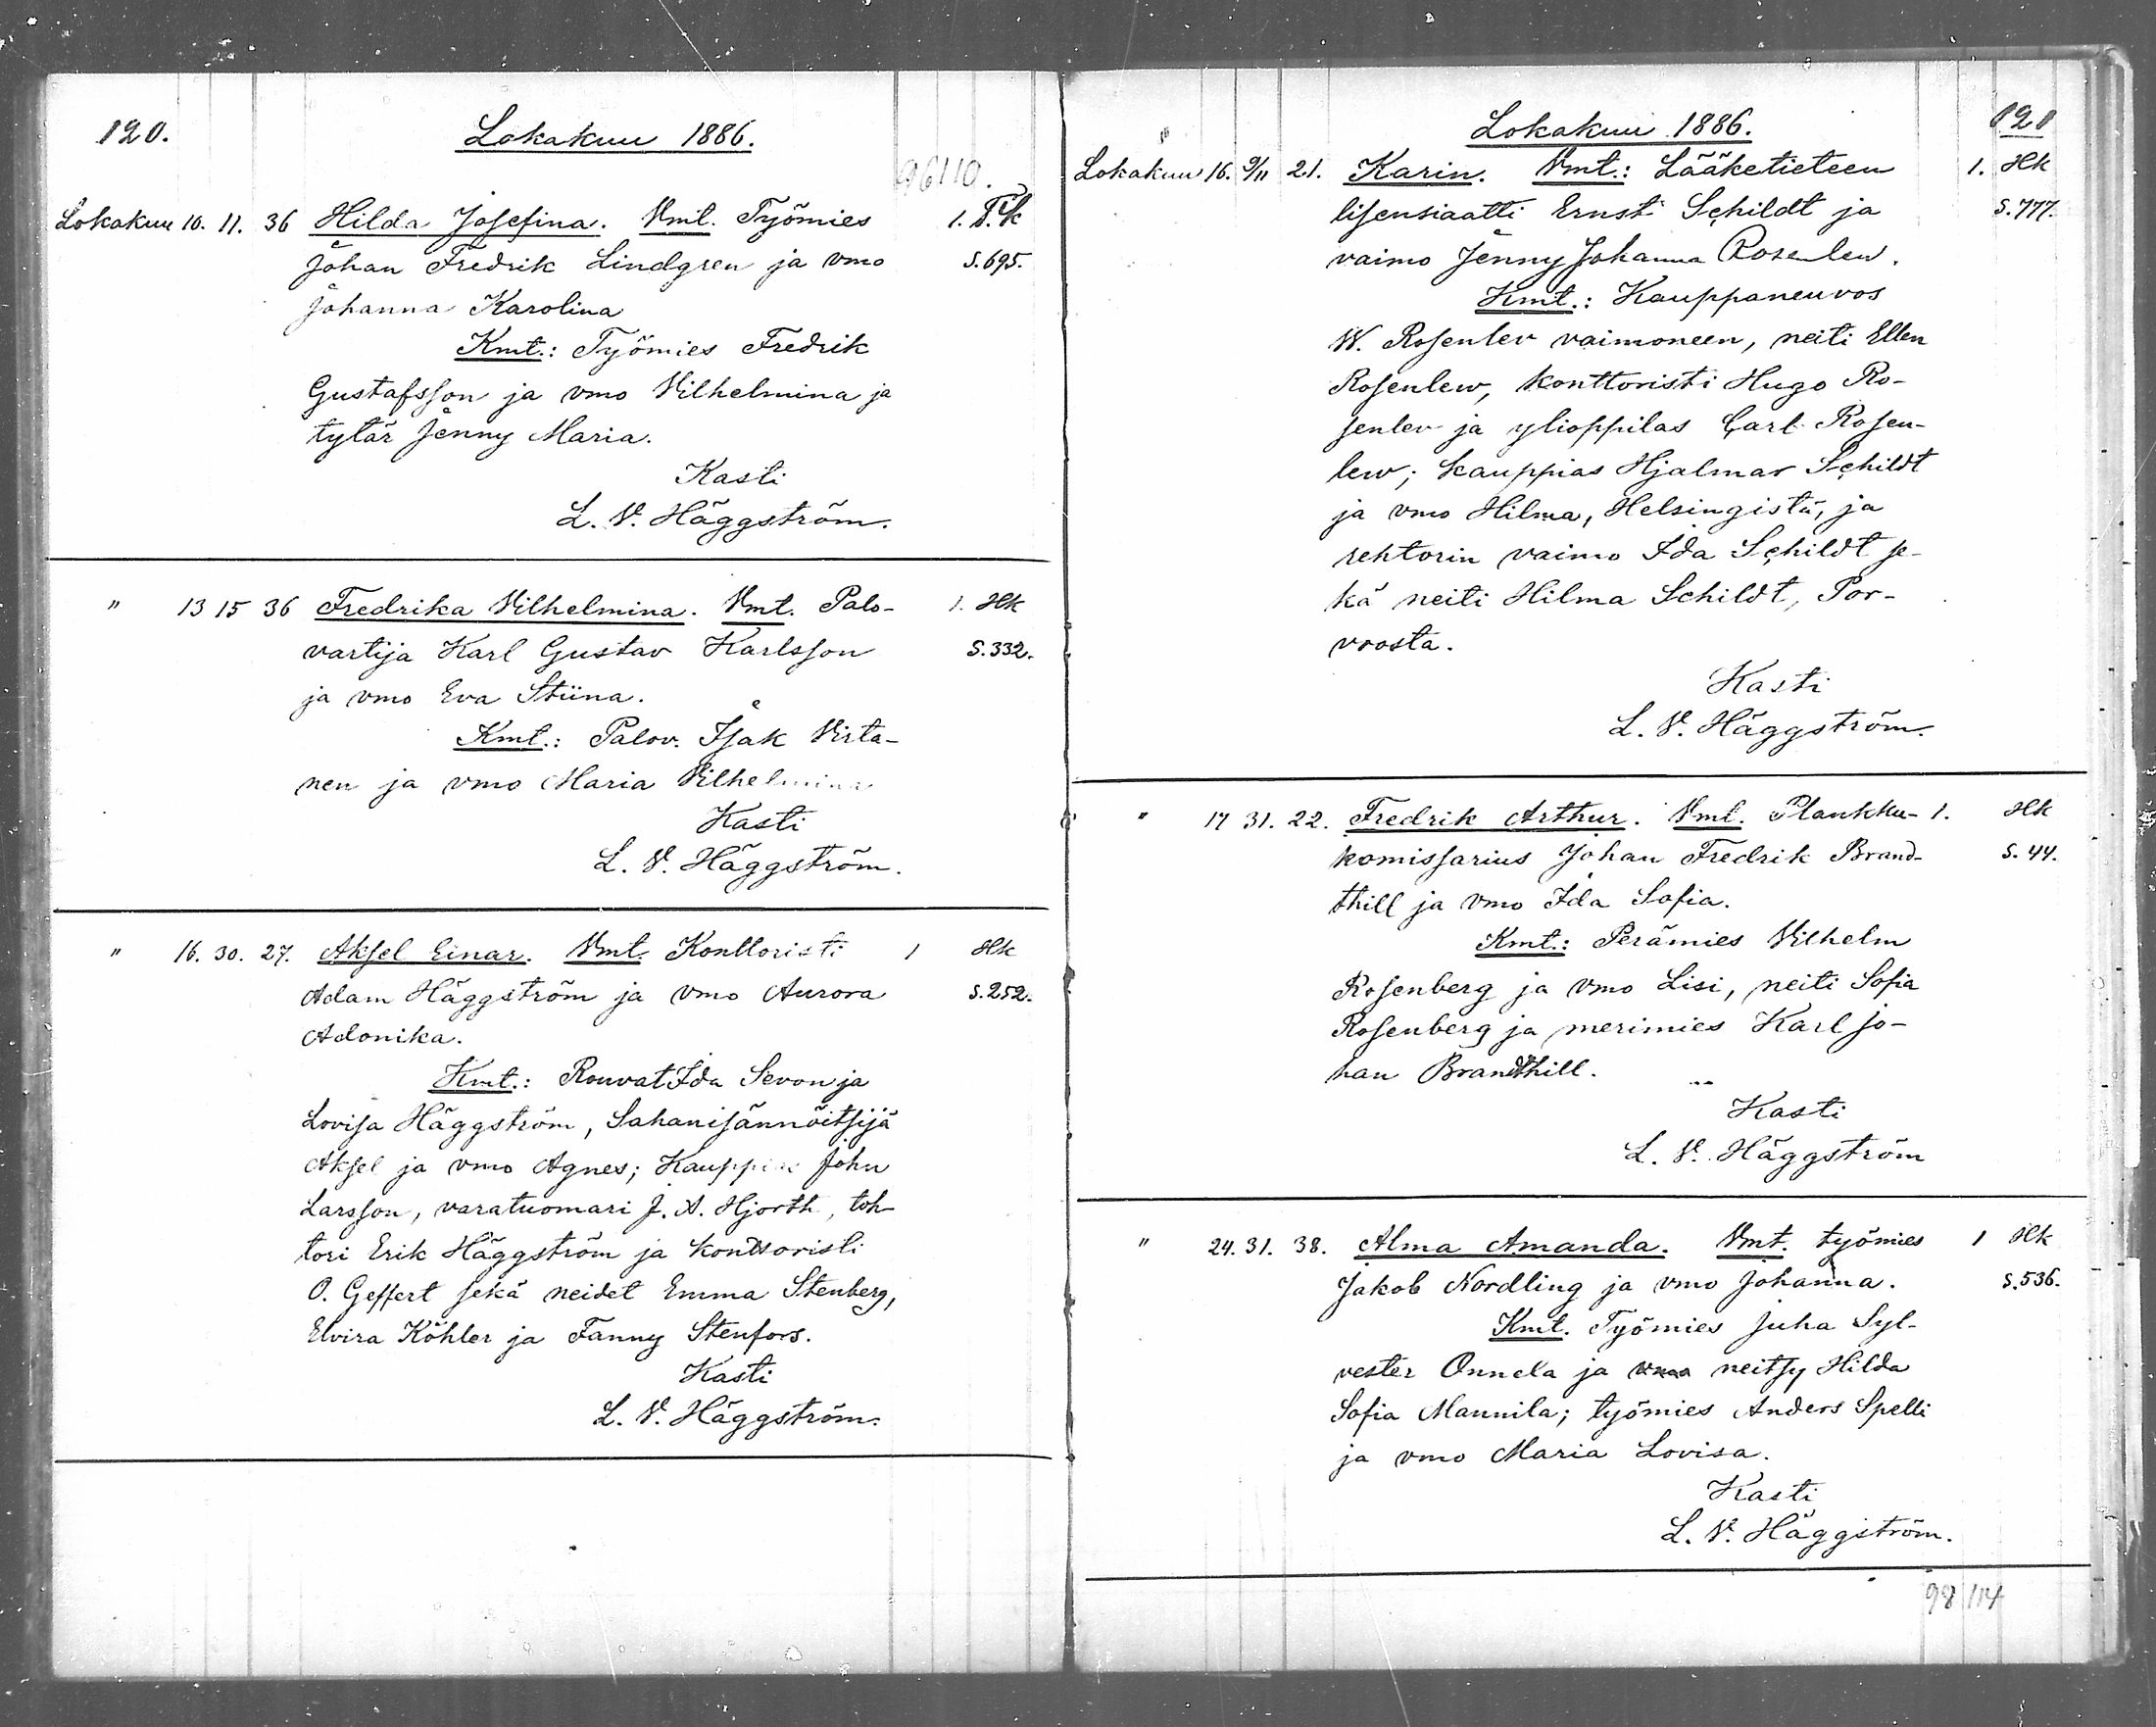 120.
Lokakuu 1886.
96 110.
Lokakuu 10. 11. 36 Hilda Josefina. Vmt. Työmies 1. T.k
Johan Fredrik Lindgren ja vmo S. 695.
Johanna Karolina
Kmt.: Työmies Fredrik
Gustafsson ja vmo Vilhelmina ja
tytär Jenny Maria.
Kasti
L. V. Häggström.
" 13 15 36 Fredrika Vilhelmina. Vmt. Palo- 1. Hk
vartija Karl Gustav Karlsson S. 332.
ja vmo Eva Stiina.
Kmt.: Palov. Isak Virta-
nen ja vmo Maria Vilhelmina
Kasti
L. V. Häggström.
" 16. 30. 27. Aksel Einar. Vmt. Konttoristi 1 Hk
Adam Häggström ja vmo Aurora S. 252.
Adonika.
Kmt.: Rouvat Ida Sevon ja
Lovisa Häggström, Sahanisännöitsijä
Aksel ja vmo Agnes; Kauppias John
Larsson, varatuomari J. A. Hjorth, toh-
tori Erik Häggström ja konttoristi
O. Geffert sekä neidet Emma Stenberg,
Elvira Köhler ja Fanny Stenfors.
Kasti
L. V. Häggström.
Lokakuu 1886.
121
Lokakuu 16. 9/11 21. Karin. Vmt.: Lääketieteen 1. Hk
lisensiaatti Ernst Schildt ja S. 777.
vaimo Jenny Johanna Rosenlew.
Kmt.: Kauppaneuvos
W. Rosenlev vaimoneen, neiti Ellen
Rosenlew, konttoristi Hugo Ro-
senlev ja ylioppilas Carl Rosen-
lew; kauppias Hjalmar Schildt
ja vmo Hilma, Helsingistä, ja
rehtorin vaimo Ida Schildt se-
kä neiti Hilma Schildt, Por-
voosta.
Kasti
L. V. Häggström.
" 17 31. 22. Fredrik Arthur. Vmt. Plankku- 1. Hk
komissarius Johan Fredrik Brand- S. 44.
thill ja vmo Ida Sofia.
Kmt.: Perämies Vilhelm
Rosenberg ja vmo Lisi, neiti Sofia
Rosenberg ja merimies Karl Jo-
han Brandthill.
Kasti
L. V. Häggström
" 24. 31. 38. Alma Amanda. Vmt. työmies 1 Hk
Jakob Nordling ja vmo Johanna. S. 536.
Kmt. Työmies Juha Syl-
vester Onnela ja vmo neitsy Hilda
Sofia Mannila; työmies Anders Spelli
ja vmo Maria Lovisa.
Kasti
L. V. Häggström.
98 114